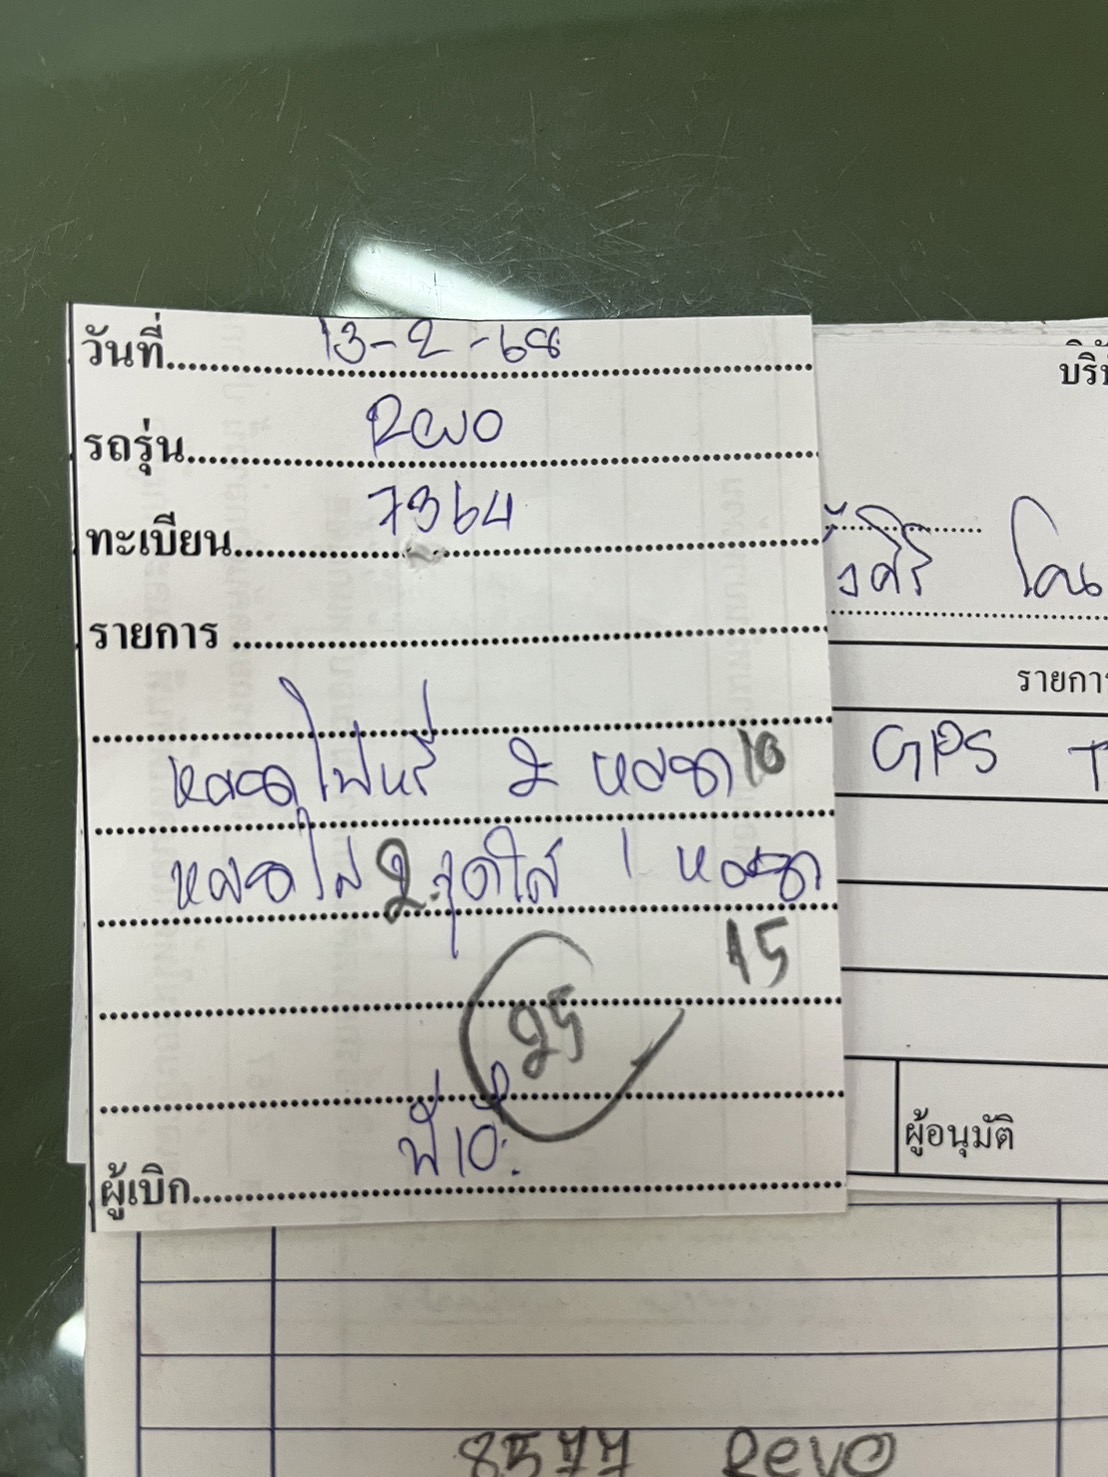 วันที่ 13-2-68
รถรุ่น Revo
ทะเบียน 7364
รายการ
หลอดไฟหรี่ 2 หลอด 10
หลอดไฟ 2 จุดใส 1 หลอด
15
25
ผู้เบิก
ริ
รายการ
GPS
ผู้อนุมัติ
8577 Revo